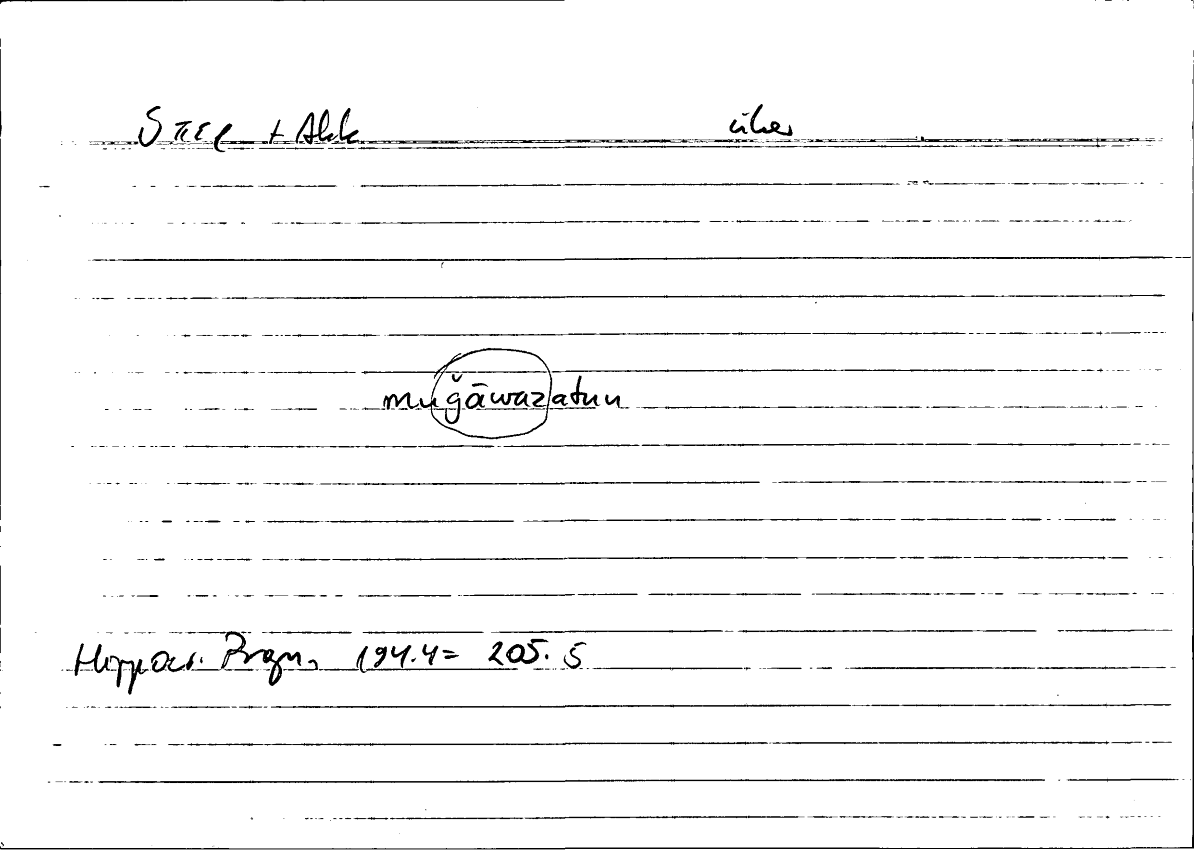 ὑπέρ + Akk über
muǧāwazatun
Hippocr. Progn. 194.4 = 205.5